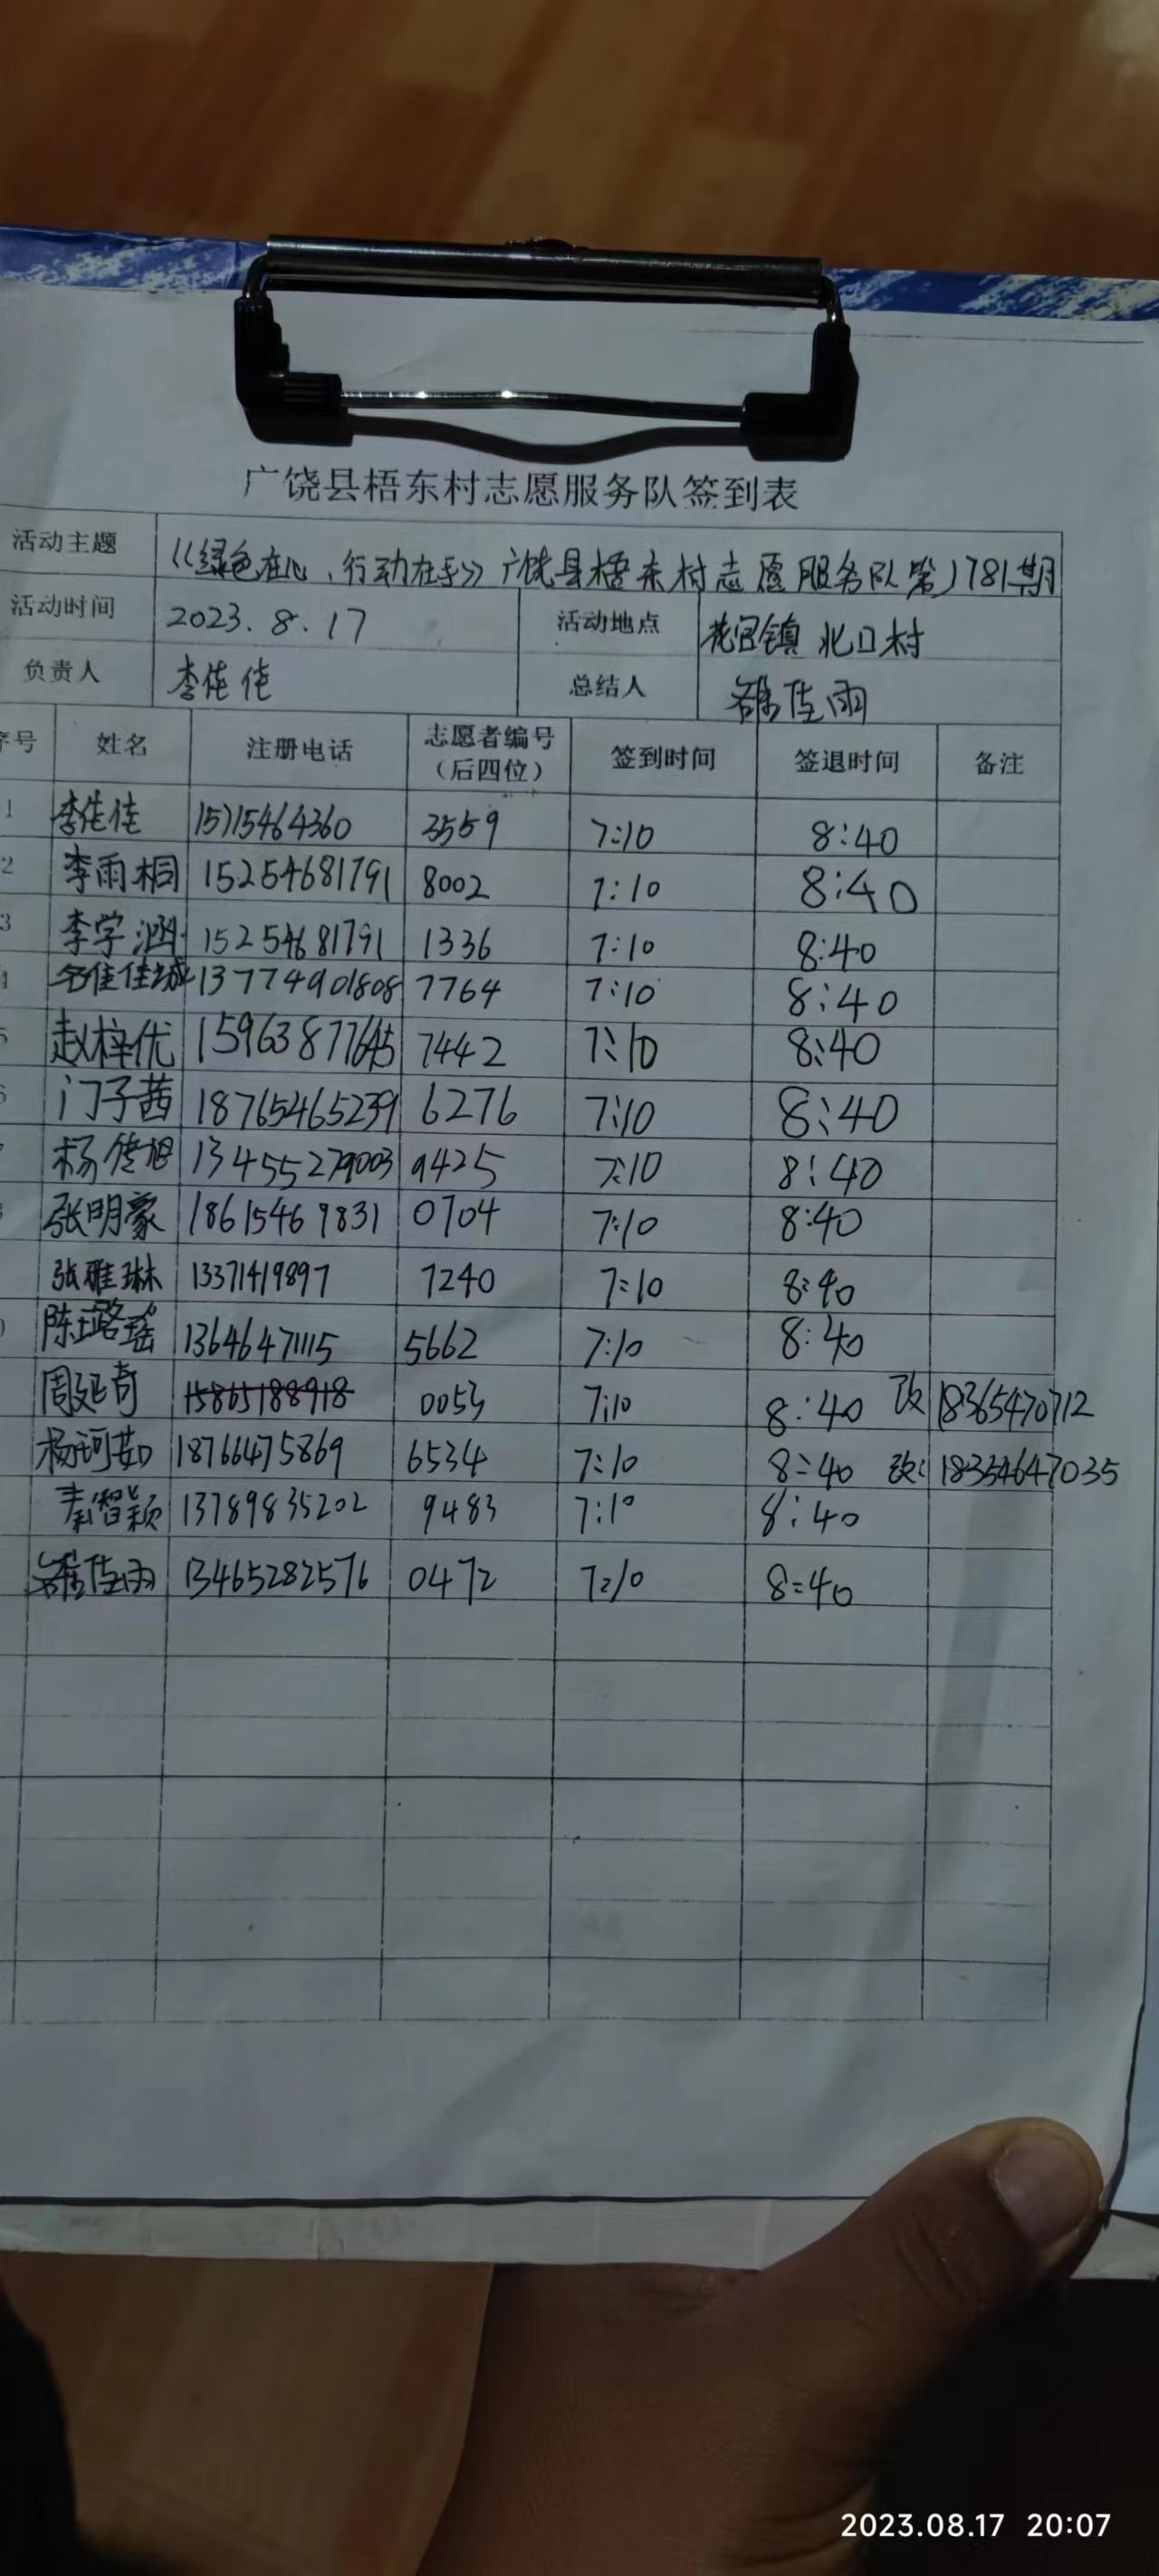 广饶县梧东村志愿服务队签到表
活动主题 《绿色在心、行动在手》广饶县梧东村志愿服务队第1781期
活动时间 2023.8.17 活动地点 花官镇北口村
负责人 李佳佳 总结人 雒佳雨
序号 姓名 注册电话 志愿者编号（后四位） 签到时间 签退时间 备注
1 李佳佳 15715464360 3559 7:10 8:40
2 李雨桐 15254681791 8002 7:10 8:40
3 李学涵 15254681791 1336 7:10 8:40
4 13774901808 7764 7:10 8:40
5 赵梓优 15963877645 7442 7:10 8:40
6 门子茜 18765465239 6276 7:10 8:40
杨佳旭 13455279003 9425 7:10 8:40
张明豪 18615469831 0704 7:10 8:40
张雅琳 13371419897 7240 7:10 8:40
陈璐瑶 13646471115 5662 7:10 8:40
周延奇 15865188918 0053 7:10 8:40 改 18365470712
杨珂茹 18766475869 6534 7:10 8:40 改: 18354647035
秦智颖 13789835202 9483 7:10 8:40
雒佳雨 13465282576 0472 7:10 8:40
2023.08.17 20:07